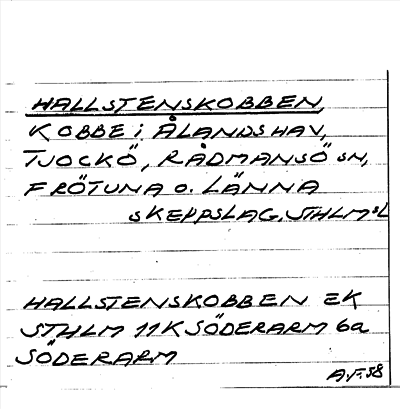 HALLSTENSKOBBEN,
KOBBE i ÅLANDSHAV,
TJOCKÖ, RÅDMANSÖ sn,
FRÖTUNA o. LÄNNA
SKEPPSLAG, STHLM sL
HALLSTENSKOBBEN EK
STHLM 11K SÖDERARM 6a
SÖDERARM
A.F. 58